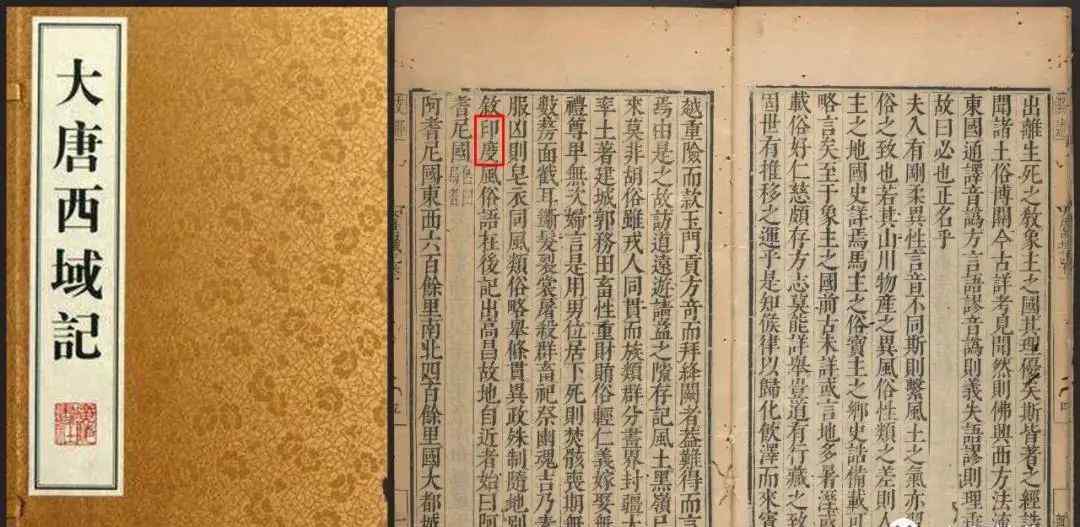 大唐西域記
出離生死之教象主之國其理優矣斯皆著之經誥
聞諸土俗博關今古詳考見聞然則佛興西方法流
東國通譯音訛方言語謬音訛則義失語謬則理乖
故曰必也正名乎
夫人有剛柔異性言音不同斯則繫風土之氣亦習
俗之致也若其山川物產之異風俗性類之差則人
主之地國史詳焉馬主之俗寶主之鄉史誥備載可
略言矣至于象主之國前古未詳或書地多暑濕
載俗好仁慈頗存方志莫能詳舉豈道有行藏之致
固世有推移之運乎是知候律以歸化飲澤而來賓
越重險而款玉門貢方奇而拜絳闕者蓋難得而言
焉由是之故訪道遠遊請益之隙存記風土黑嶺已
來莫非胡俗雖戎人同貫而族類群分畫界封疆大
率土著建城郭務田畜性重財賄俗輕仁義嫁娶無
禮尊卑無次婦言是用男位居下死則焚骸喪期無
數剺面截耳斷髮裂裳屠殺群畜祀祭幽魂吉乃素
服凶則皂衣同風類俗略舉條貫異政殊制隨地別
敘印度風俗語在後記出高昌故地自近者始曰阿
耆尼國
阿耆尼國東西六百餘里南北四百餘里國大都城